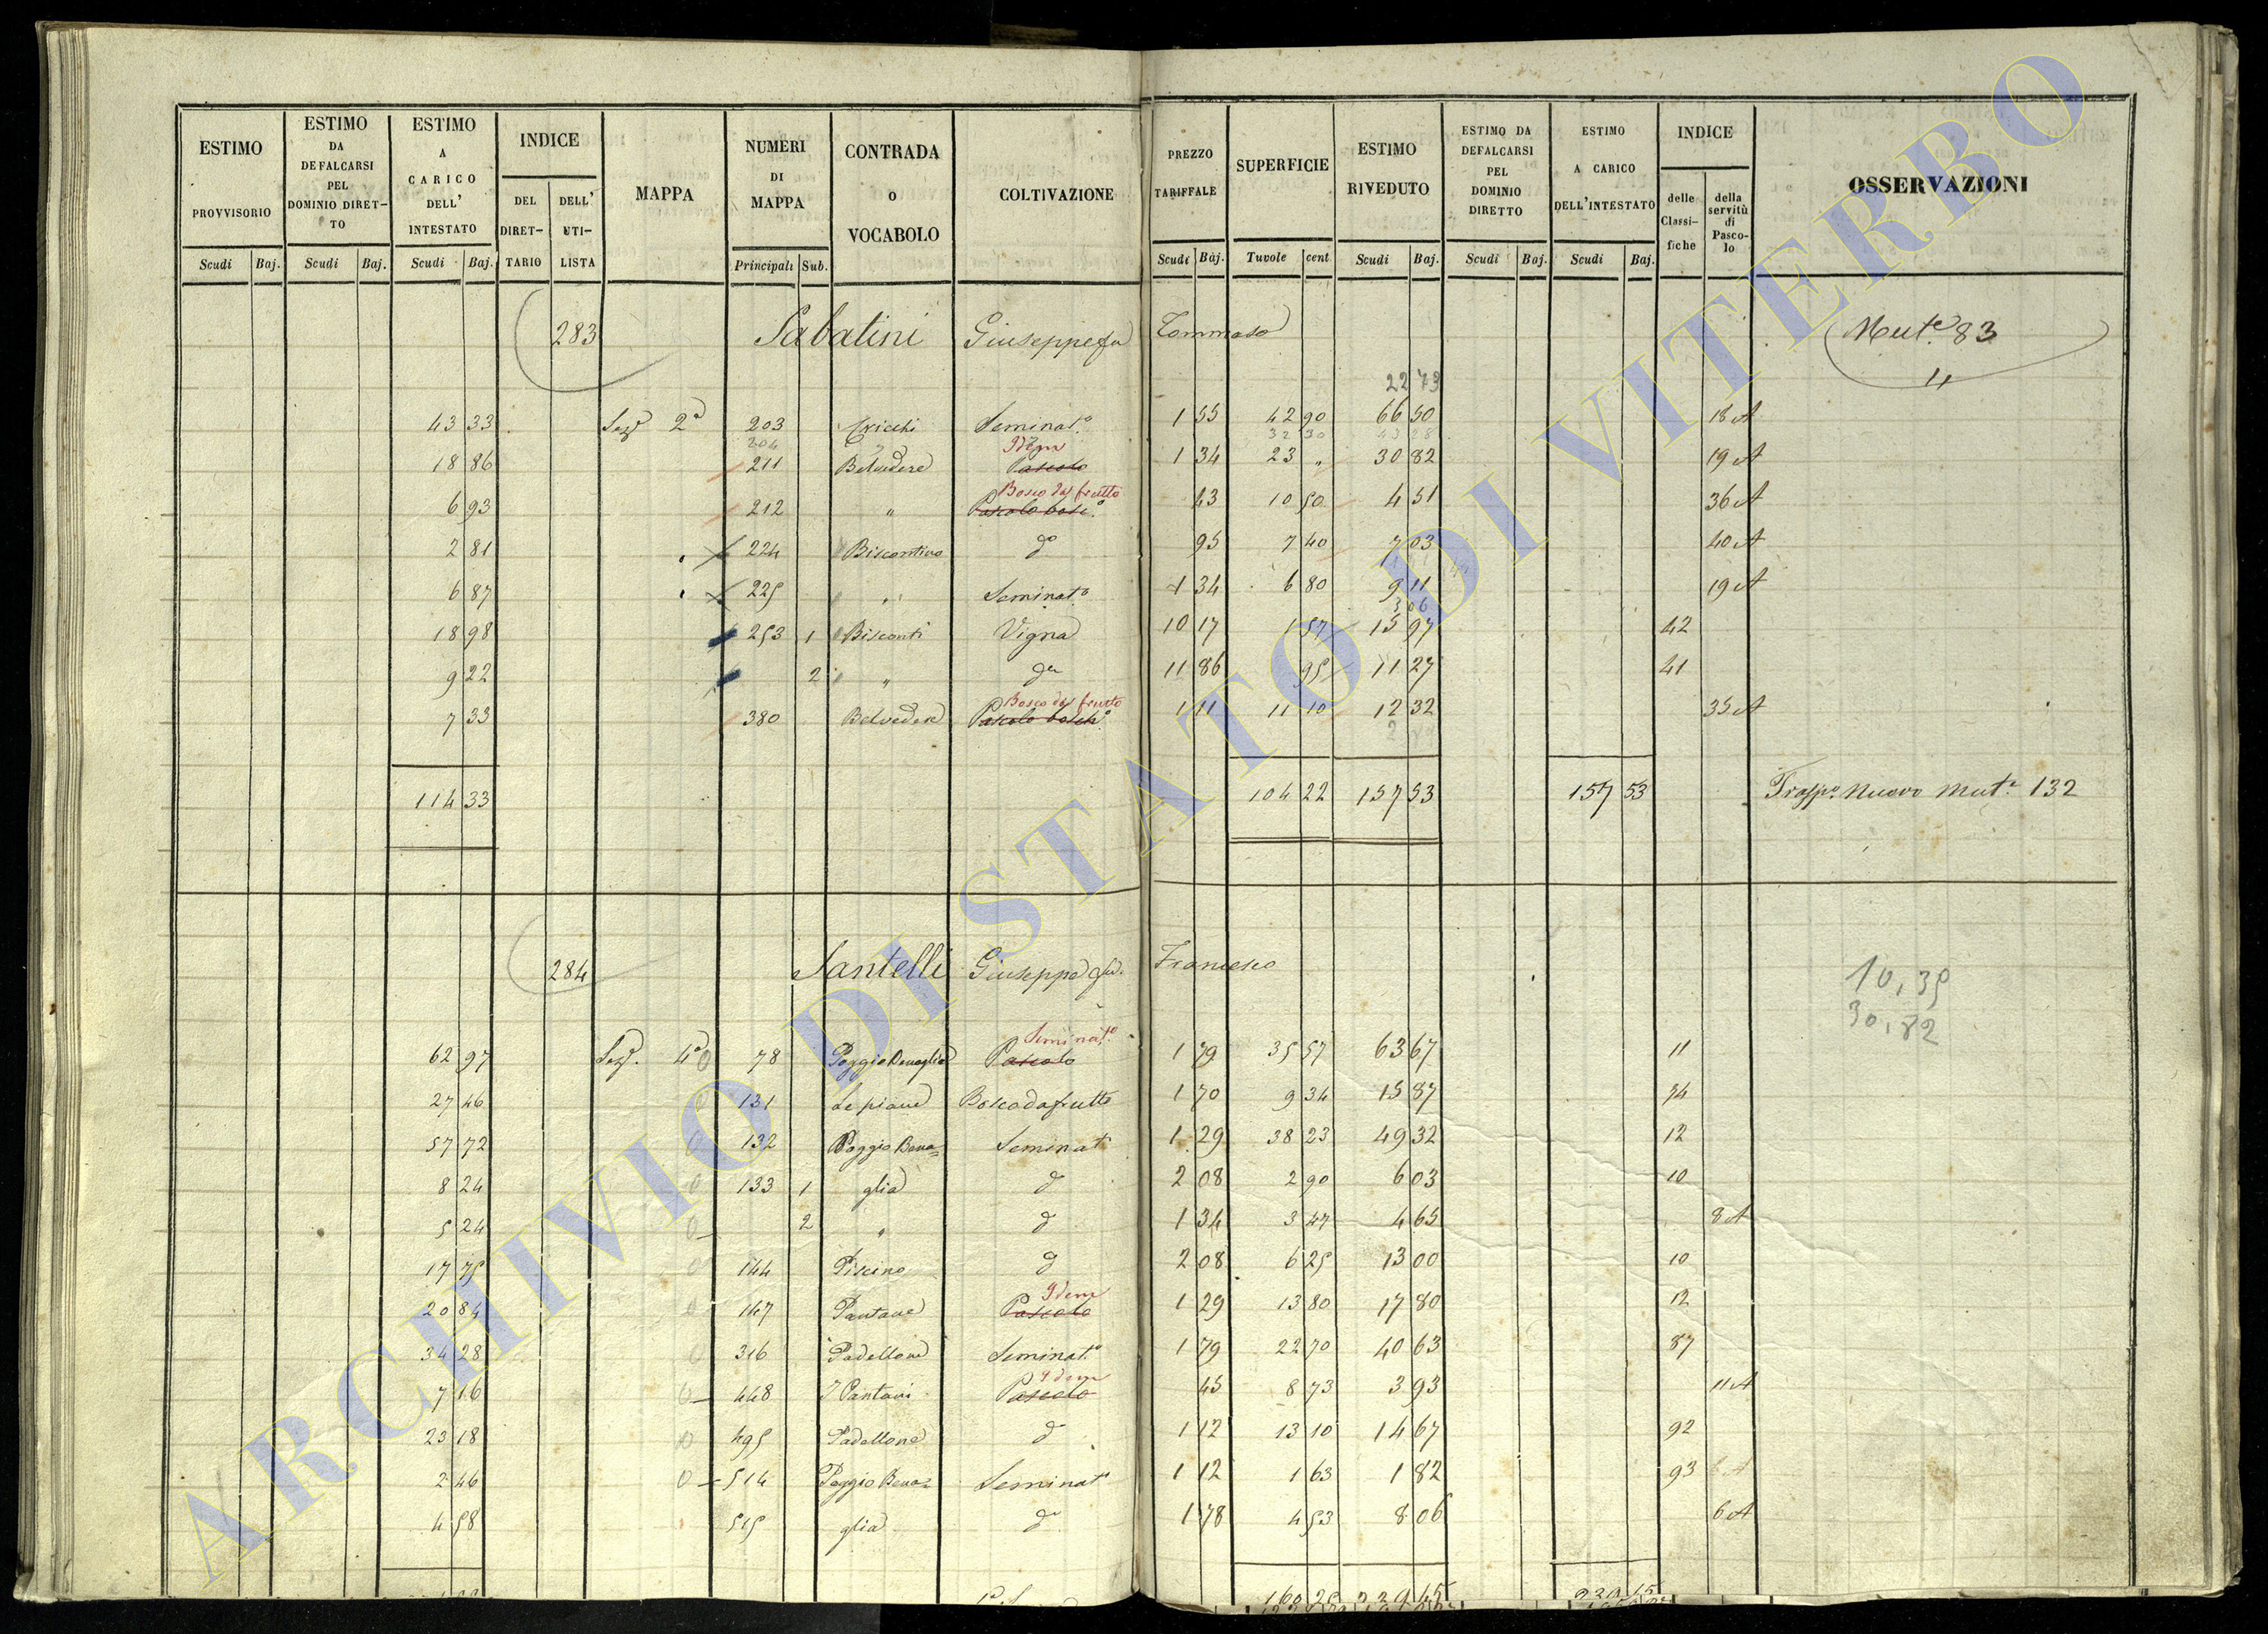 ESTIMO PROVVISORIO
ESTIMO DA DEFALCARSI PEL DOMINIO DIRET-TO
ESTIMO A CARICO DELL' INTESTATO
INDICE
DEL DIRET-TARIO
DELL' UTI-LISTA
MAPPA
NUMERI DI MAPPA
CONTRADA o VOCABOLO
COLTIVAZIONE
PREZZO TARIFFALE
SUPERFICIE
ESTIMO RIVEDUTO
ESTIMO DA DEFALCARSI PEL DOMINIO DIRETTO
ESTIMO A CARICO DELL'INTESTATO
INDICE
delle Classi-fiche
della servitù di Pasco-lo
OSSERVAZIONI
Scudi Baj. Scudi Baj. Scudi Baj. Principali Sub. Scudi Baj. Tavole cent Scudi Baj. Scudi Baj. Scudi Baj.
283 Sabatini Giuseppe fu Tommaso Mut.e 83
11
22 73
43 33 Sez.e 2a 203 Cricchi Seminat.o 1 55 42 90 66 50 18 A
204 Idem 32 30
18 86 211 Belvedere Pascolo 1 34 23 " 30 82 19 A
Bosco da frutto
6 93 212 " Pascolo bosc.o 43 10 50 4 51 36 A
2 81 224 Biscontino do 95 7 40 7 03 40 A
6 87 225 " Seminat.o 1 34 6 80 9 11 19 A
306
18 98 253 1 Bisconti Vigna 10 17 1 57 15 97 42
9 22 2 " da 11 86 95 11 27 41
Bosco da frutto
7 33 380 Belvedere Pascolo bosch.o 1 11 11 10 12 32 35 A
114 33 104 22 157 53 157 53 Trasp.o Nuovo Mut.e 132
284 Santelli Giuseppe fu Francesco
10,39
30,82
Seminat.o
62 97 Sez.e 4a 0 78 Poggio Benaglia Pascolo 1 79 35 57 63 67 11
27 46 0 131 Le piane Bosco da frutto 1 70 9 34 15 87 94
57 72 0 132 Poggio Bena= Seminat.o 1 29 38 23 49 32 12
8 24 0 133 1 glia d 2 08 2 90 6 03 10
5 24 0 2 " d 1 34 3 47 4 65 8 A
17 75 0 144 Piscino d 2 08 6 25 13 00 10
Idem
20 84 0 147 Pantane Pascolo 1 29 13 80 17 80 12
34 28 0 316 Padellone Seminat.o 1 79 22 70 40 63 87
Idem
7 16 0 448 I Pantani Pascolo 45 8 73 3 93 11 A
23 18 0 495 Padellone d 1 12 13 10 14 67 92
2 46 0 514 Poggio Bena= Seminat.o 1 12 1 63 1 82 93
4 58 515 glia do 1 78 4 53 8 06 6 A
239 45
ARCHIVIO DI STATO DI VITERBO